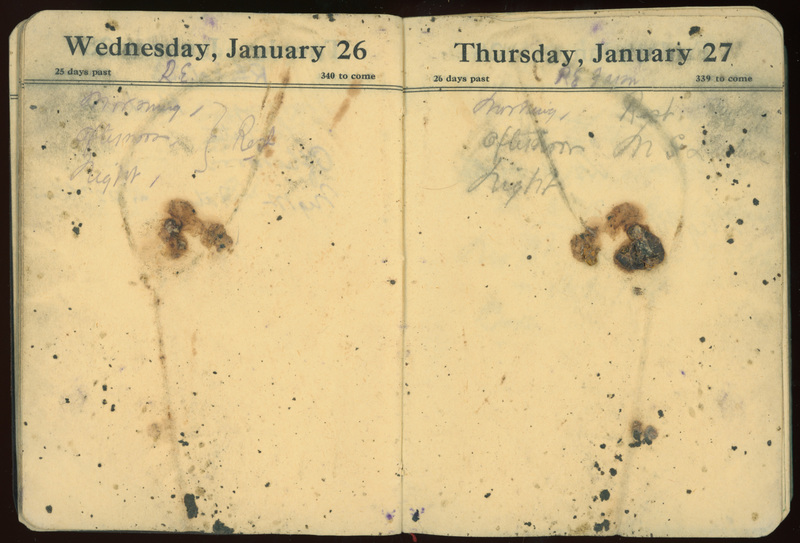 Wednesday, January 26
25 days past
340 to come
R E
Morning,
Afternoon, Rest
Night,
Thursday, January 27
26 days past
339 to come
R E
Morning, Rest,
Afternoon M S
Night